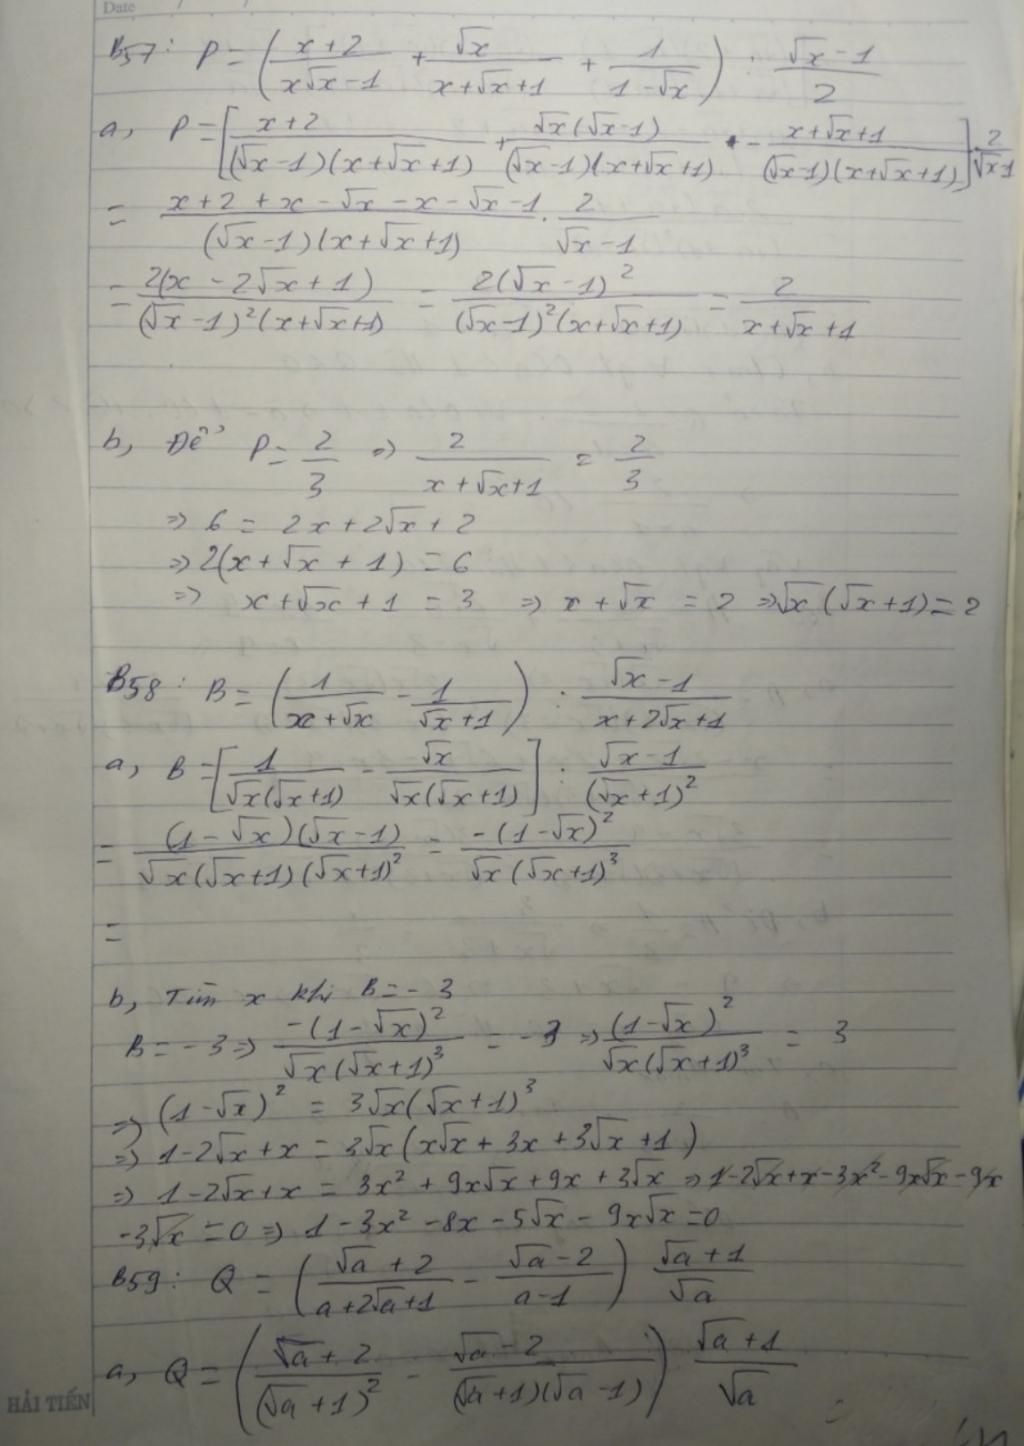 Date
B57: P = ( (x+2)/(x√x-1) + √x/(x+√x+1) + 1/(1-√x) ) : (√x-1)/2
a, P = [ (x+2)/((√x-1)(x+√x+1)) + √x(√x-1)/((√x-1)(x+√x+1)) - (x+√x+1)/((√x-1)(x+√x+1)) ] . 2/(√x-1)
= (x+2+x-√x-x-√x-1)/((√x-1)(x+√x+1)) . 2/(√x-1)
= 2(x-2√x+1)/((√x-1)²(x+√x+1)) = 2(√x-1)²/((√x-1)²(x+√x+1)) = 2/(x+√x+1)
b, Để P = 2/3 => 2/(x+√x+1) = 2/3
=> 6 = 2x+2√x+2
=> 2(x+√x+1) = 6
=> x+√x+1 = 3 => x+√x = 2 => √x(√x+1) = 2
B58: B = ( 1/(x+√x) - 1/(√x+1) ) : (√x-1)/(x+2√x+1)
a, B = [ 1/(√x(√x+1)) - √x/(√x(√x+1)) ] : (√x-1)/(√x+1)²
= (1-√x)(√x-1)/(√x(√x+1)(√x+1)²) = -(1-√x)²/(√x(√x+1)³)
=
b, Tìm x khi B = -3
B = -3 => -(1-√x)²/(√x(√x+1)³) = -3 => (1-√x)²/(√x(√x+1)³) = 3
=> (1-√x)² = 3√x(√x+1)³
=> 1-2√x+x = 3√x(x√x+3x+3√x+1)
=> 1-2√x+x = 3x²+9x√x+9x+3√x => 1-2√x+x-3x²-9x√x-9x
-3√x = 0 => 1-3x²-8x-5√x-9x√x = 0
B59: Q = ( (√a+2)/(a+2√a+1) - (√a-2)/(a-1) ) (√a+1)/√a
a, Q = ( (√a+2)/(√a+1)² - (√a-2)/((√a+1)(√a-1)) ) (√a+1)/√a
HẢI TIẾN